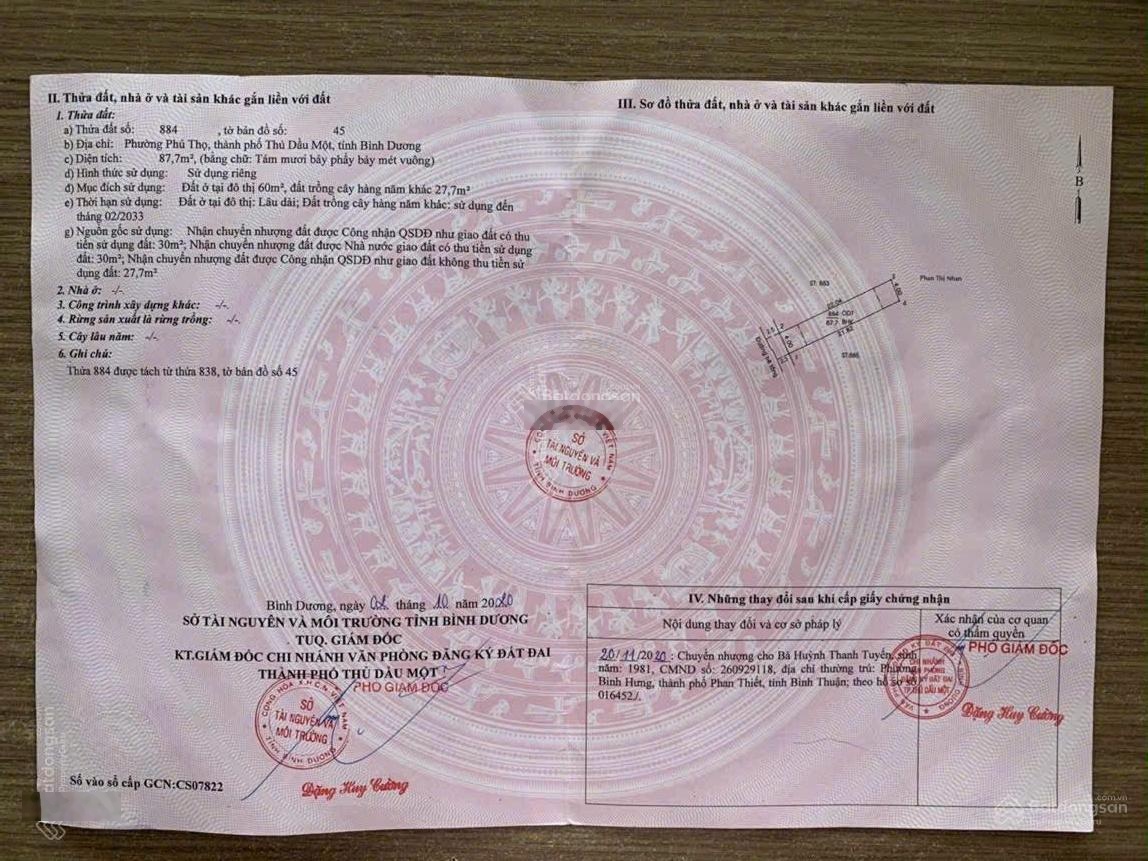 II. Thửa đất, nhà ở và tài sản khác gắn liền với đất
1. Thửa đất:
a) Thửa đất số: 884 , tờ bản đồ số: 45
b) Địa chỉ: Phường Phú Thọ, thành phố Thủ Dầu Một, tỉnh Bình Dương
c) Diện tích: 87,7m², (bằng chữ: Tám mươi bảy phẩy bảy mét vuông)
d) Hình thức sử dụng: Sử dụng riêng
đ) Mục đích sử dụng: Đất ở tại đô thị 60m², đất trồng cây hàng năm khác 27,7m²
e) Thời hạn sử dụng: Đất ở tại đô thị: Lâu dài; Đất trồng cây hàng năm khác: sử dụng đến
tháng 02/2033
g) Nguồn gốc sử dụng: Nhận chuyển nhượng đất được Công nhận QSDĐ như giao đất có thu
tiền sử dụng đất: 30m²; Nhận chuyển nhượng đất được Nhà nước giao đất có thu tiền sử dụng
đất: 30m²; Nhận chuyển nhượng đất được Công nhận QSDĐ như giao đất không thu tiền sử
dụng đất: 27,7m²
2. Nhà ở: -/-
3. Công trình xây dựng khác: -/-
4. Rừng sản xuất là rừng trồng: -/-
5. Cây lâu năm: -/-
6. Ghi chú:
Thửa 884 được tách từ thửa 838, tờ bản đồ số 45
Bình Dương, ngày 02 tháng 10 năm 2020
SỞ TÀI NGUYÊN VÀ MÔI TRƯỜNG TỈNH BÌNH DƯƠNG
TUQ. GIÁM ĐỐC
KT.GIÁM ĐỐC CHI NHÁNH VĂN PHÒNG ĐĂNG KÝ ĐẤT ĐAI
THÀNH PHỐ THỦ DẦU MỘT
PHÓ GIÁM ĐỐC
CỘNG HÒA X.H.C.N VIỆT NAM
SỞ
TÀI NGUYÊN VÀ
MÔI TRƯỜNG
TỈNH BÌNH DƯƠNG
Đặng Huy Cường
Số vào sổ cấp GCN:CS07822
III. Sơ đồ thửa đất, nhà ở và tài sản khác gắn liền với đất
B
ST: 883
Phan Thị Nhan
22.04
4.00
884 ODT
87.7 BHK
21.82
4.00
ST:885
Đường bê tông
Batdongsan
SỞ
TÀI NGUYÊN VÀ
MÔI TRƯỜNG
TỈNH BÌNH DƯƠNG
IV. Những thay đổi sau khi cấp giấy chứng nhận
Nội dung thay đổi và cơ sở pháp lý
Xác nhận của cơ quan
có thẩm quyền
20/11/2020 : Chuyển nhượng cho Bà Huỳnh Thanh Tuyền, sinh
năm: 1981, CMND số: 260929118, địa chỉ thường trú: Phường
Bình Hưng, thành phố Phan Thiết, tỉnh Bình Thuận; theo hồ sơ số
016452./.
PHÓ GIÁM ĐỐC
CHI NHÁNH
VĂN PHÒNG
ĐĂNG KÝ ĐẤT ĐAI
TP.THỦ DẦU MỘT
Đặng Huy Cường
Batdongsan
.com.vn